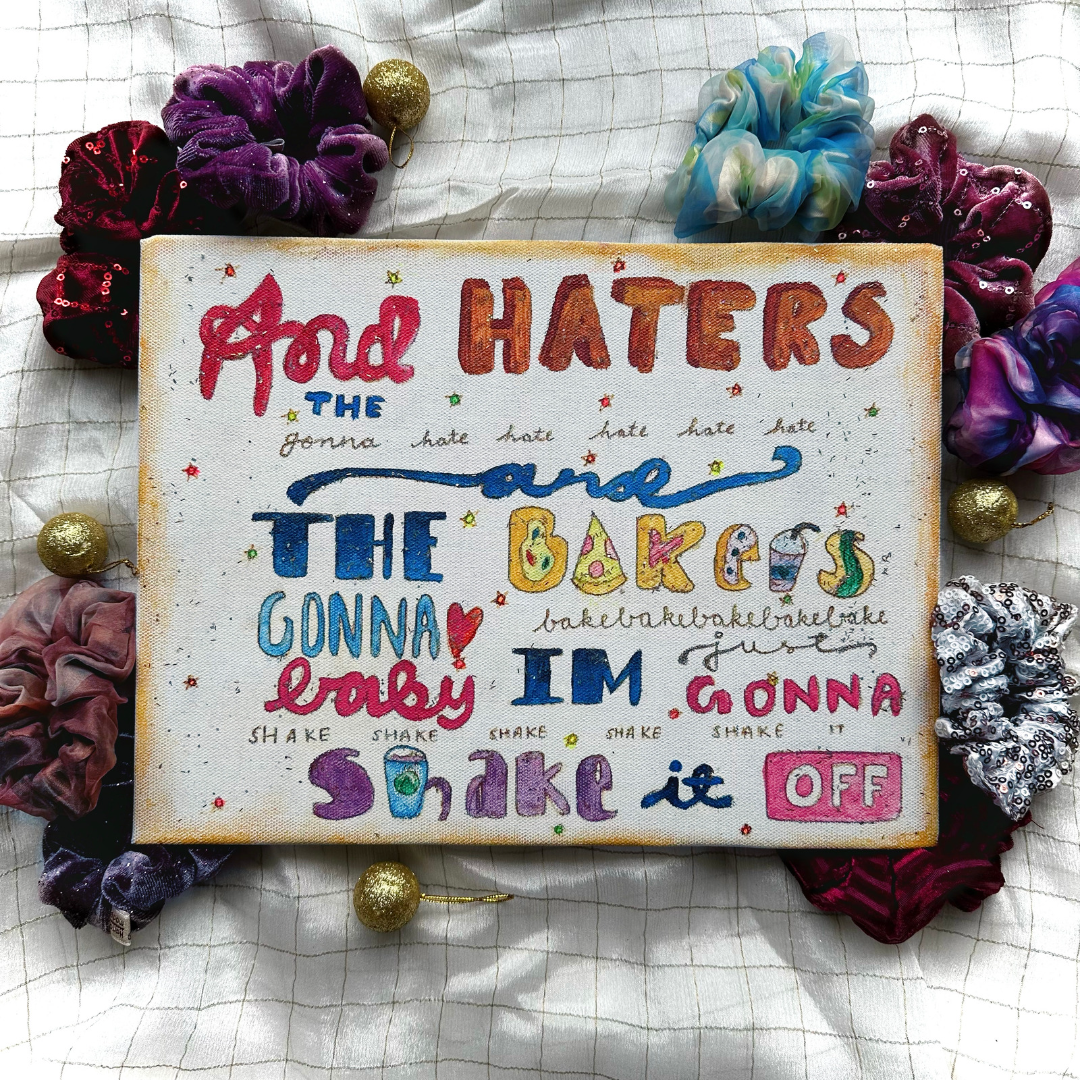 And HATERS
THE
gonna hate hate hate hate hate
and
THE BAKers
GONNA bakebakebakebakebake
just
baby IM GONNA
SHAKE SHAKE SHAKE SHAKE SHAKE IT
Shake it OFF